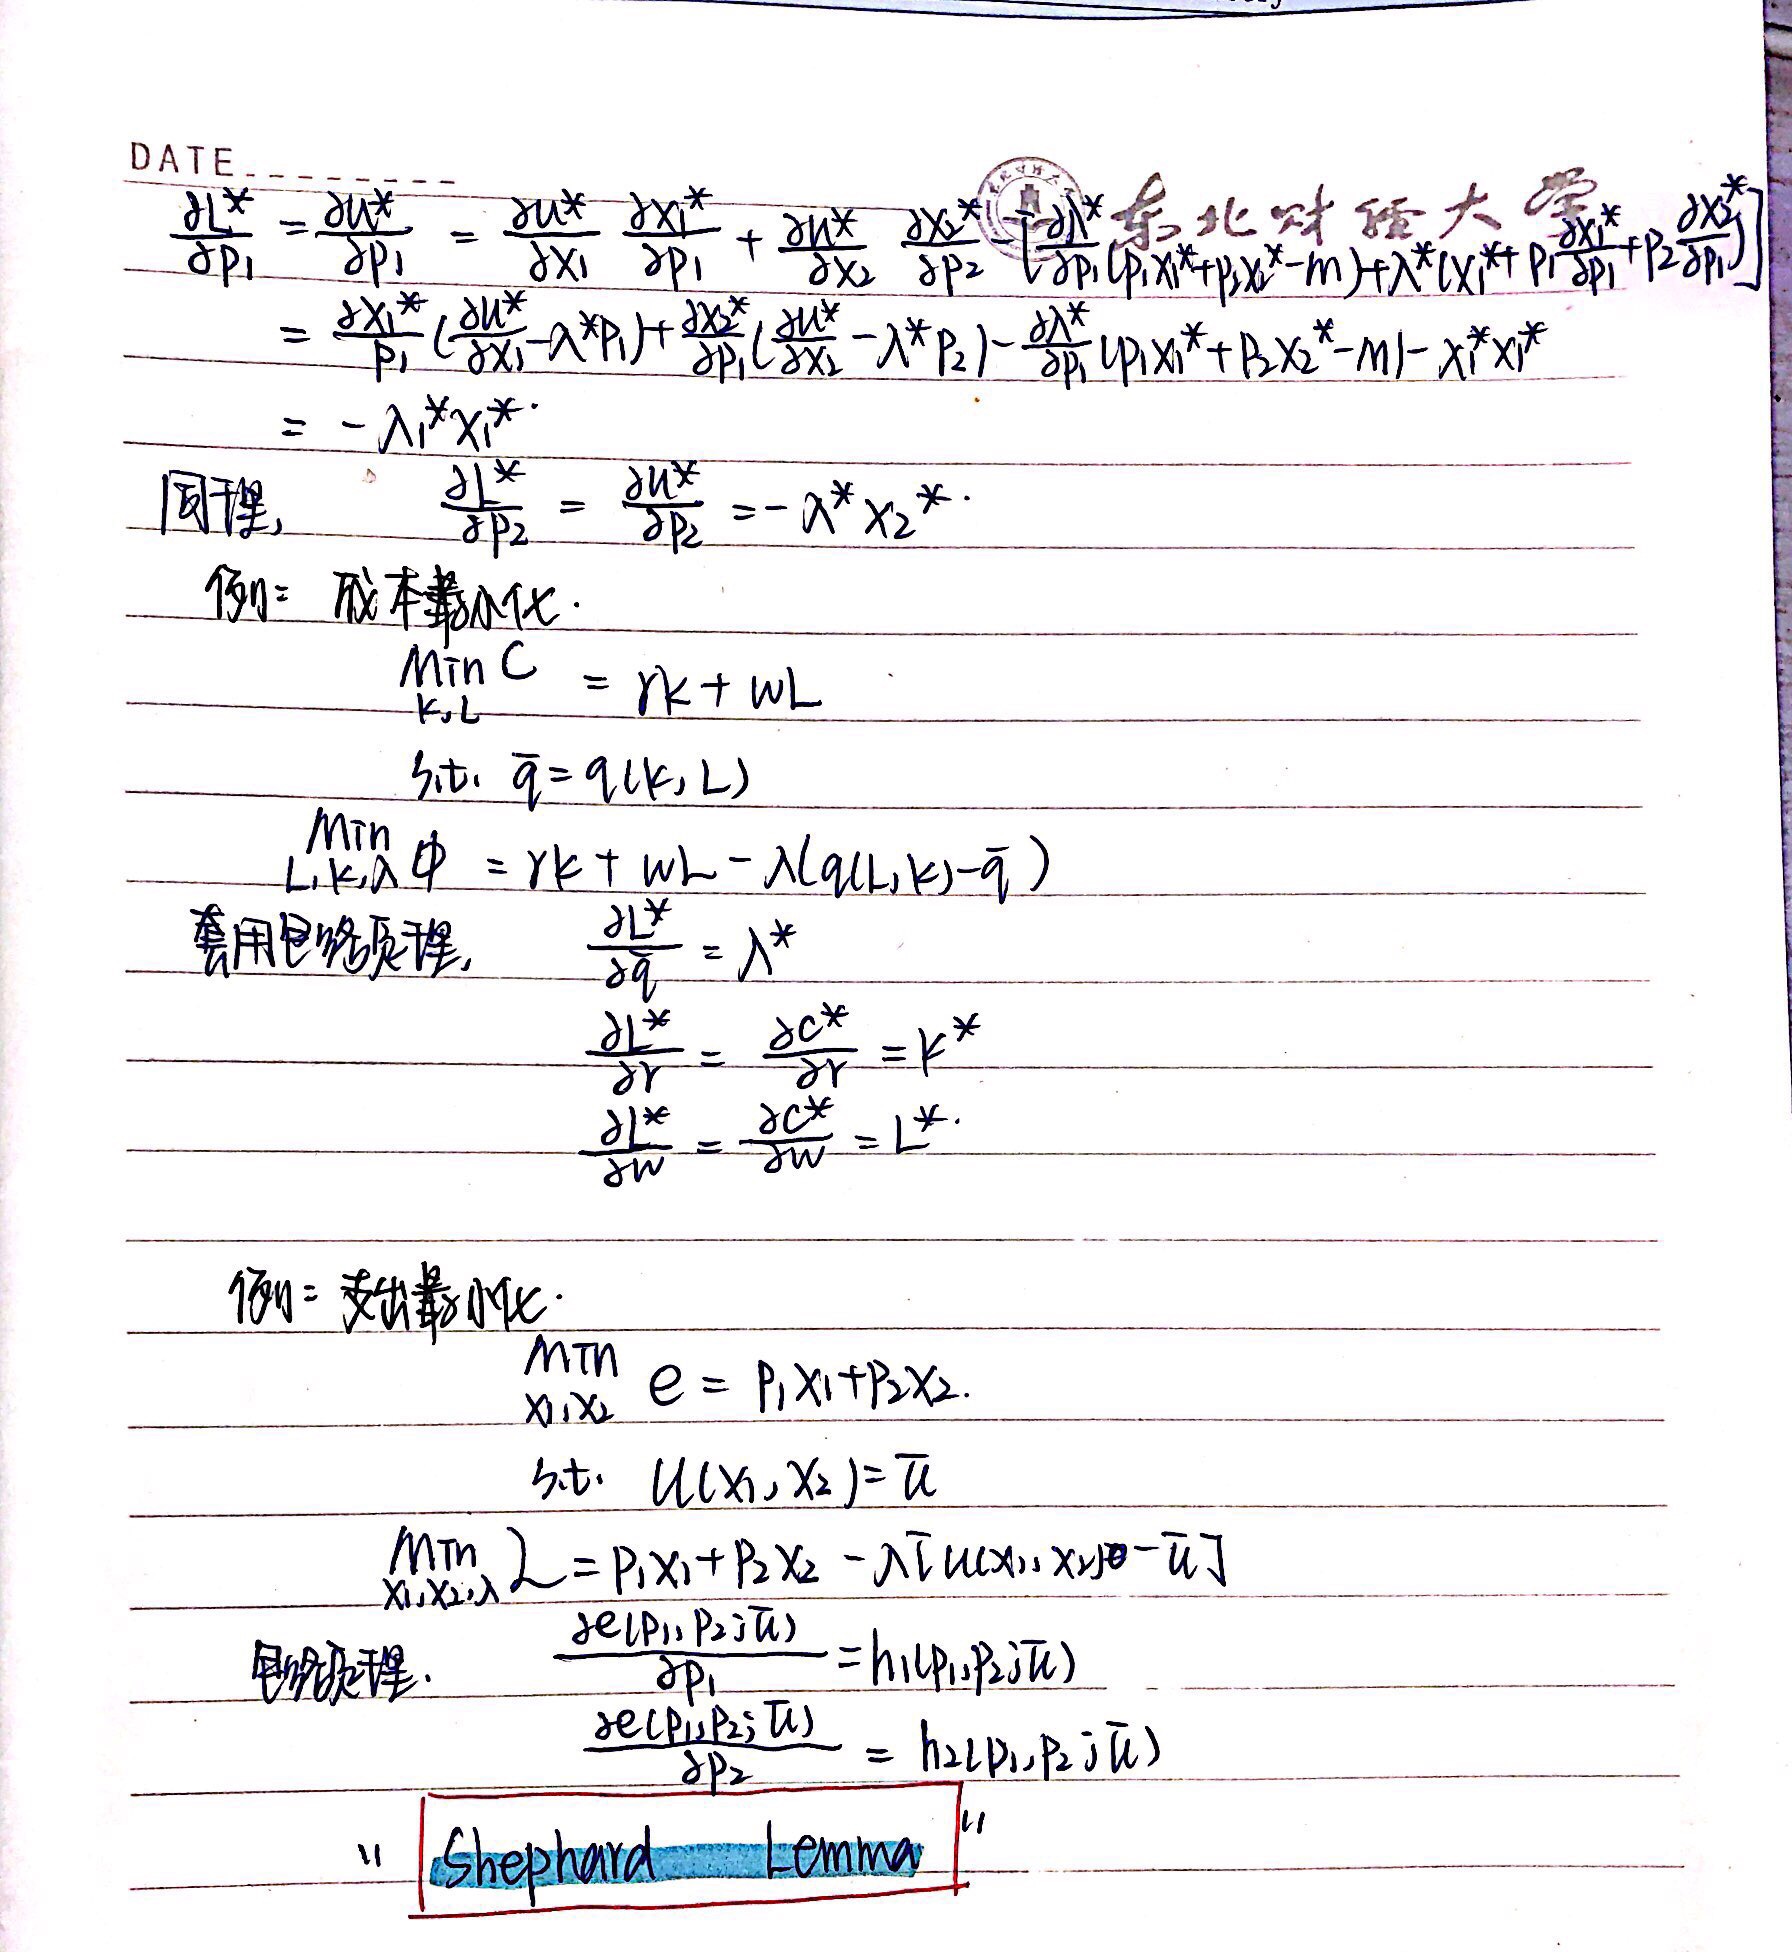 DATE
东北财经大学
∂L*/∂p₁ = ∂u*/∂p₁ = ∂u*/∂x₁ ∂x₁*/∂p₁ + ∂u*/∂x₂ ∂x₂*/∂p₂ - [∂λ*/∂p₁(p₁x₁*+p₂x₂*-m)+λ*(x₁*+p₁∂x₁*/∂p₁+p₂∂x₂*/∂p₁)]
= ∂x₁*/p₁(∂u*/∂x₁-λ*p₁)+∂x₂*/∂p₁(∂u*/∂x₂-λ*p₂)-∂λ*/∂p₁(p₁x₁*+p₂x₂*-m)-x₁*x₁*
= -λ₁*x₁*.
同理, ∂L*/∂p₂ = ∂u*/∂p₂ = -λ*x₂*.
例: 成本最小化.
Min C = rk + wL
k,L
s.t. q̄ = q(k, L)
Min ϕ = rk + wL - λ(q(L,k)-q̄)
L,k,λ
套用包络原理, ∂L*/∂q̄ = λ*
∂L*/∂r = ∂C*/∂r = k*
∂L*/∂w = ∂C*/∂w = L*.
例: 支出最小化.
Min e = p₁x₁+p₂x₂.
x₁,x₂
s.t. u(x₁, x₂) = ū
Min L = p₁x₁+p₂x₂ - λ[u(x₁, x₂) - ū]
x₁,x₂,λ
包络原理. ∂e(p₁,p₂;ū)/∂p₁ = h₁(p₁,p₂;ū)
∂e(p₁,p₂;ū)/∂p₂ = h₂(p₁,p₂;ū)
"Shephard Lemma"